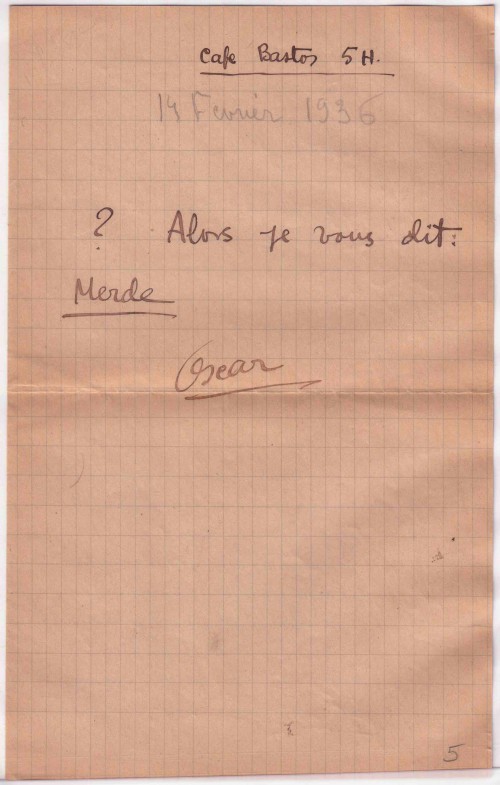 Cafe Bastos 5H.
14 Fevrier 1936
? Alors je vous dit:
Merde
Oscar
5